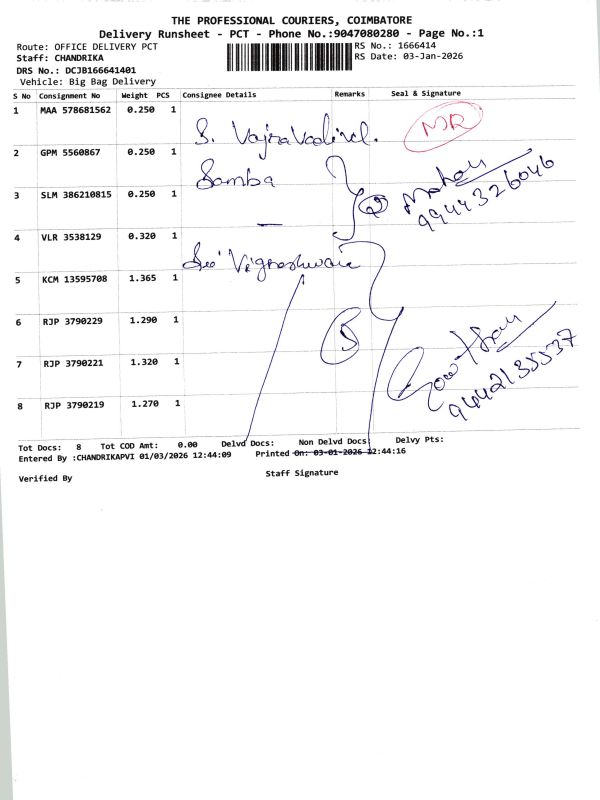 THE PROFESSIONAL COURIERS, COIMBATORE
Delivery Runsheet - PCT - Phone No.:9047080280 - Page No.:1
Route: OFFICE DELIVERY PCT
RS No.: 1666414
Staff: CHANDRIKA
RS Date: 03-Jan-2026
DRS No.: DCJB166641401
Vehicle: Big Bag Delivery
S No Consignment No Weight PCS Consignee Details Remarks Seal & Signature
1 MAA 578681562 0.250 1 S. NR
2 GPM 5560867 0.250 1 Samba
3 SLM 386210815 0.250 1 2 Mohan
9944326046
4 VLR 3538129 0.320 1 Vigneshwara
5 KCM 13595708 1.365 1
6 RJP 3790229 1.290 1 5
7 RJP 3790221 1.320 1 Gowtham
8 RJP 3790219 1.270 1
Tot Docs: 8 Tot COD Amt: 0.00 Delvd Docs: Non Delvd Docs: Delvy Pts:
Entered By :CHANDRIKAPVI 01/03/2026 12:44:09 Printed On: 03-01-2026 12:44:16
Staff Signature
Verified By